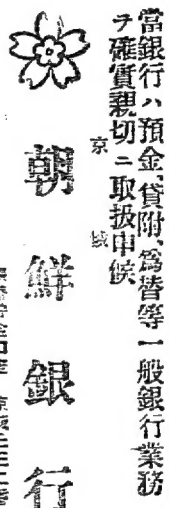 當銀行ハ預金、貸附、爲替等一般銀行業務
ヲ確實親切ニ取扱申候
京城
朝鮮銀行